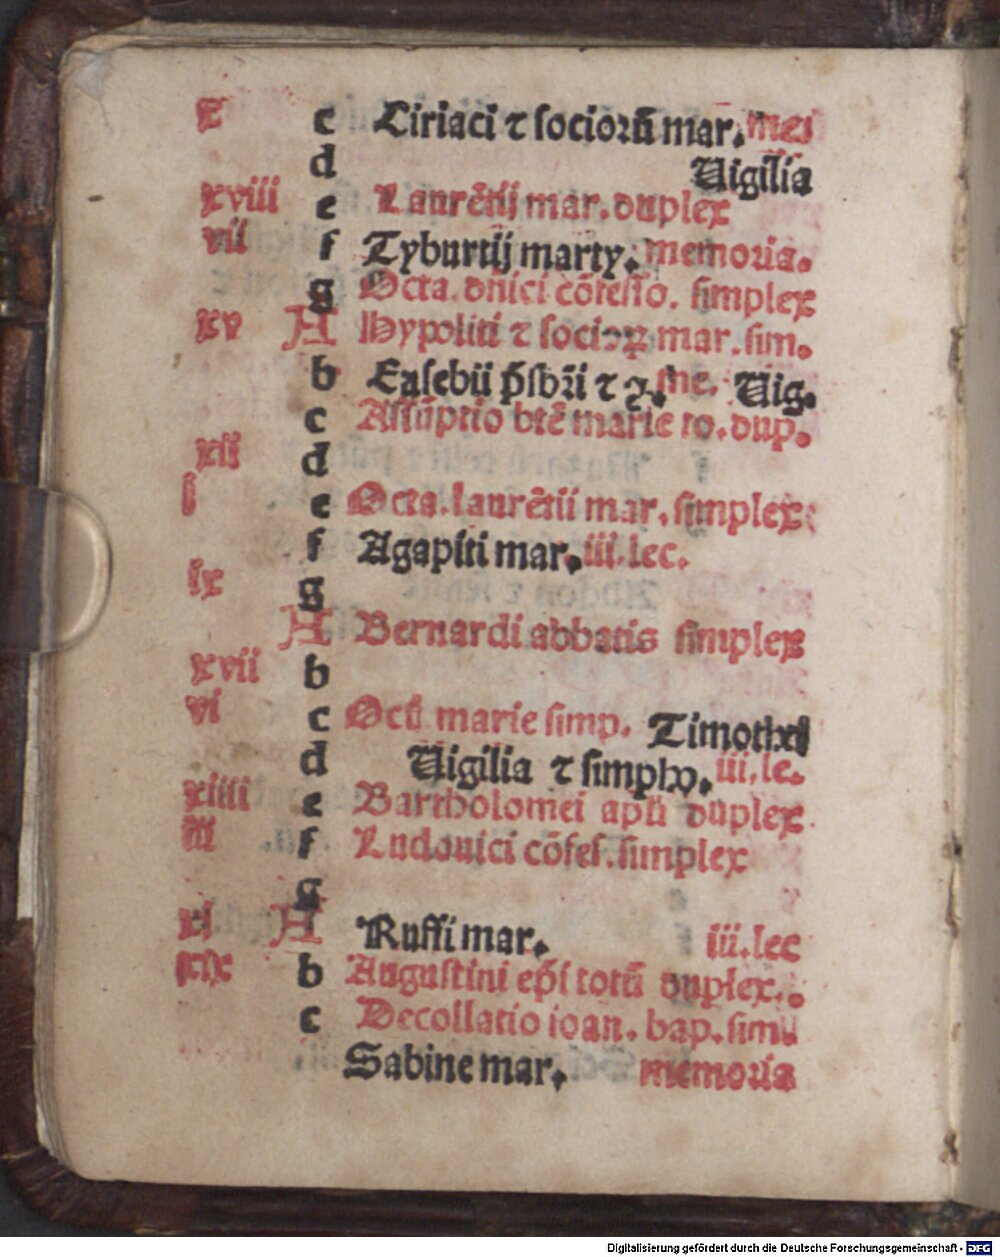 x c Ciriaci ⁊ socioꝛū mar. mem
d Vigilia
xviii e Laurētij mar. duplex
vii f Tyburtij marty. memoꝛia.
g Octa. dn̄ici cōfesso. simplex
xv A Hypoliti ⁊ socioꝝ mar. sim.
b Eusebii p̄sbr̄i ⁊ ꝯ. me. Vig.
c Assūptio btē marie to. dup.
xii d
i e Octa. laurētii mar. simplex
f Agapiti mar. iii. lec.
ix g
A Bernardi abbatis simplex
xvii b
vi c Octā marie simp. Timothei
d Vigilia ⁊ simpho. iii. le.
xiiii e Bartholomei apl̄i duplex
iii f Ludouici cōfes. simplex
g
xi A Ruffi mar. iii. lec
xix b Augustini ep̄i totū duplex.
c Decollatio ioan. bap. simil
Sabine mar. memoꝛia
Digitalisierung gefördert durch die Deutsche Forschungsgemeinschaft - DFG